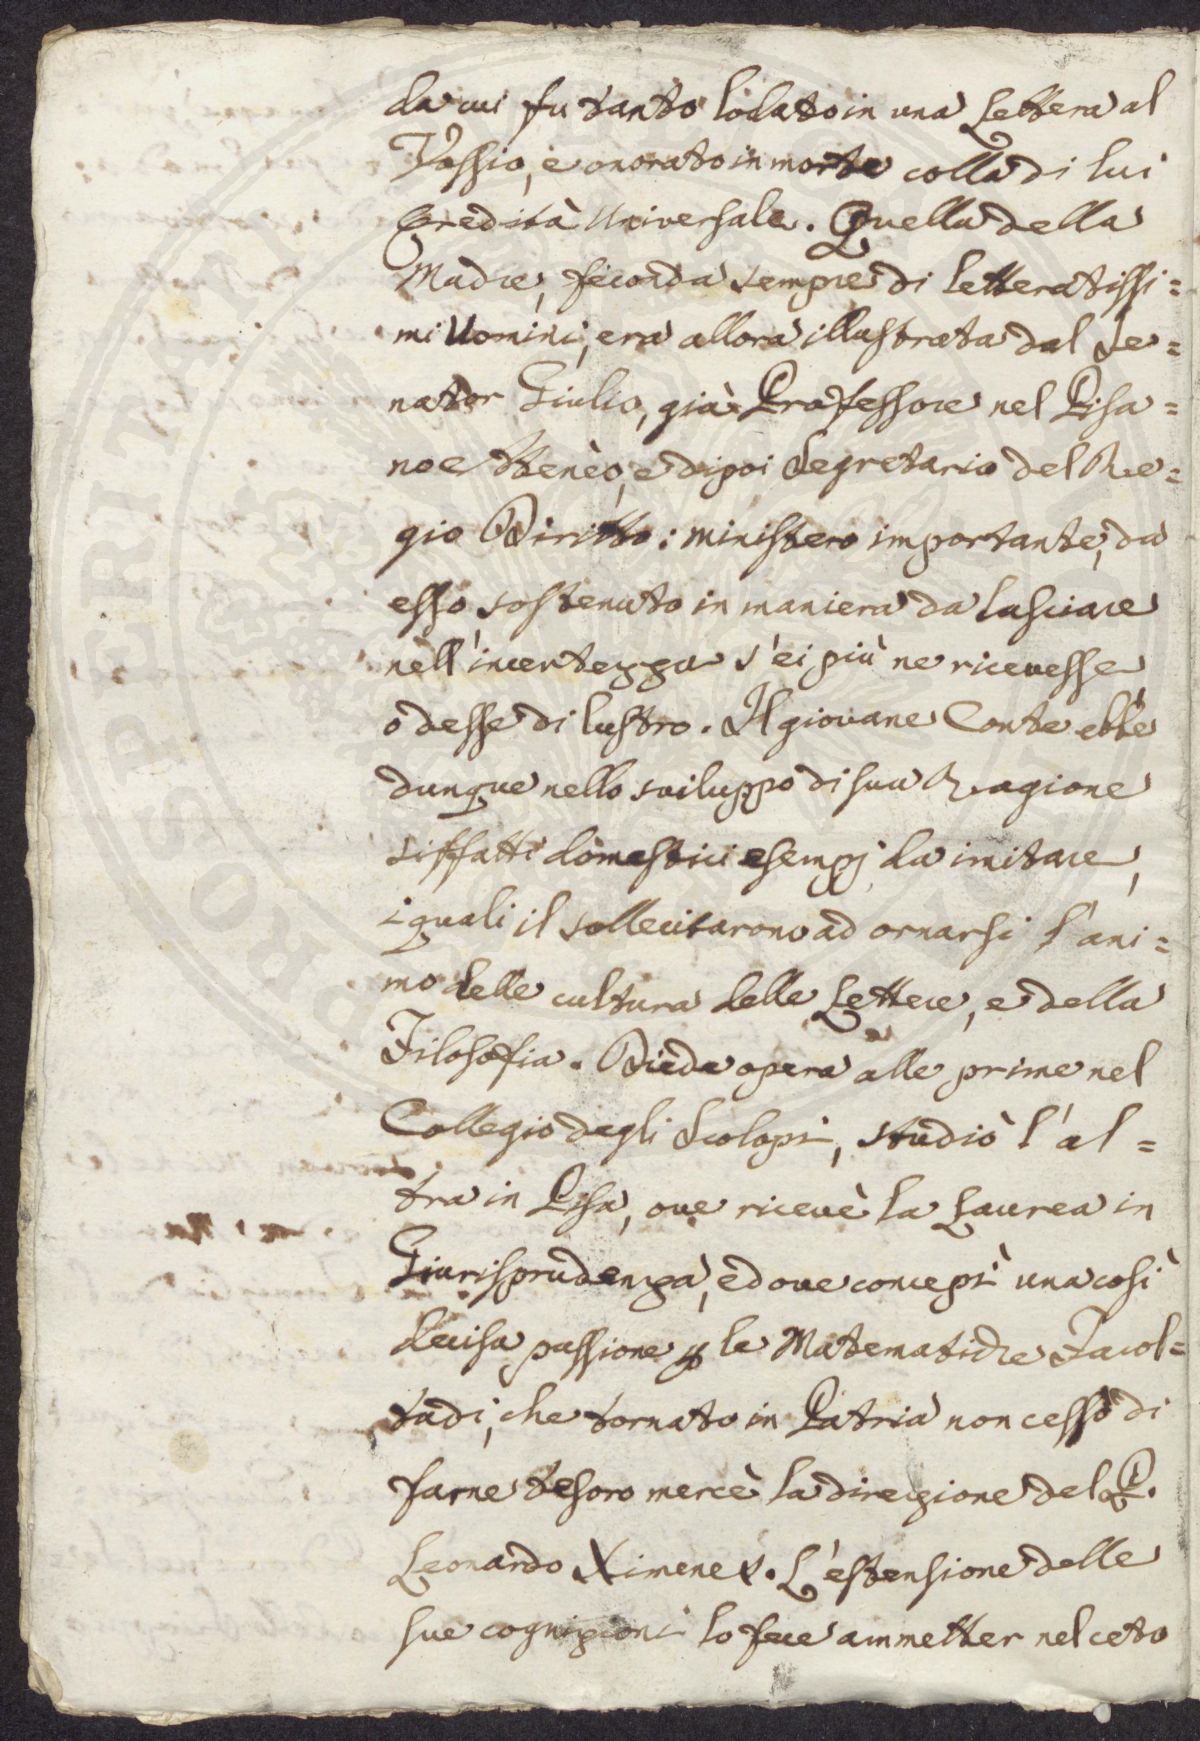 da cui fu tanto lodato in una Lettera al
Vossio, e onorato in morte colla di lui
Eredità Universale. Quella della
Madre, feconda sempre di letteratissi=
mi Uomini, era allora illustrata dal Se=
nator Giulio, già Professore nel Pisa=
no Atenèo, e dipoi Segretario del Re=
gio Diritto: ministero importante, da
esso sostenuto in maniera da lasciare
nell'incertezza s'ei più ne ricevesse
o desse di lustro. Il giovane Conte ebbe
dunque nello sviluppo di sua Ragione
siffatti domestici esempj da imitare,
i quali il sollecitarono ad ornarsi l'ani=
mo delle cultura delle Lettere, e della
Filosofia. Diede opera alle prime nel
Collegio degli Scolopi, studiò l'al=
tra in Pisa, ove ricevè la Laurea in
Giurisprudenza, e dove concepì una così
decisa passione p le Matematiche Facol=
tadi, che tornato in Patria non cessò di
farne tesoro mercè la direzione del P.
Leonardo Ximenes. L'estensione delle
sue cognizioni lo fece ammetter nel ceto
PROSPERITATI